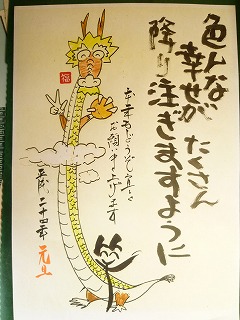 色んな
幸せが
たくさん
降り注ぎますように
福
本年もどうぞ宜しく
お願い申し上げます
平成二十四年 元旦